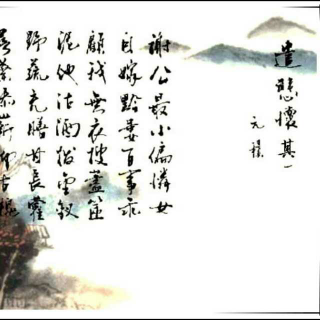 遣悲懷其一
元稹
謝公最小偏憐女
自嫁黔婁百事乖
顧我無衣搜藎篋
泥他沽酒拔金釵
野蔬充膳甘長藿
落葉添薪仰古槐